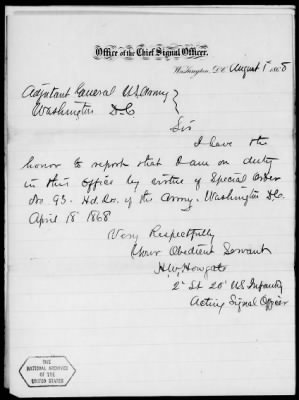 Office of the Chief Signal Officer,
Washington, D.C. August 1st 1868
Adjutant General U.S. Army
Washington D.C.
Sir
I have the
honor to report that I am on duty
in this office by virtue of Special Order
No. 93. Hd. Qo. of the Army. Washington D.C.
April 18 1868
Very Respectfully
Your Obedient Servant
H.W. Howgate
2d Lt 20th US Infantry
Acting Signal Officer
THE
NATIONAL ARCHIVES
OF THE
UNITED STATES